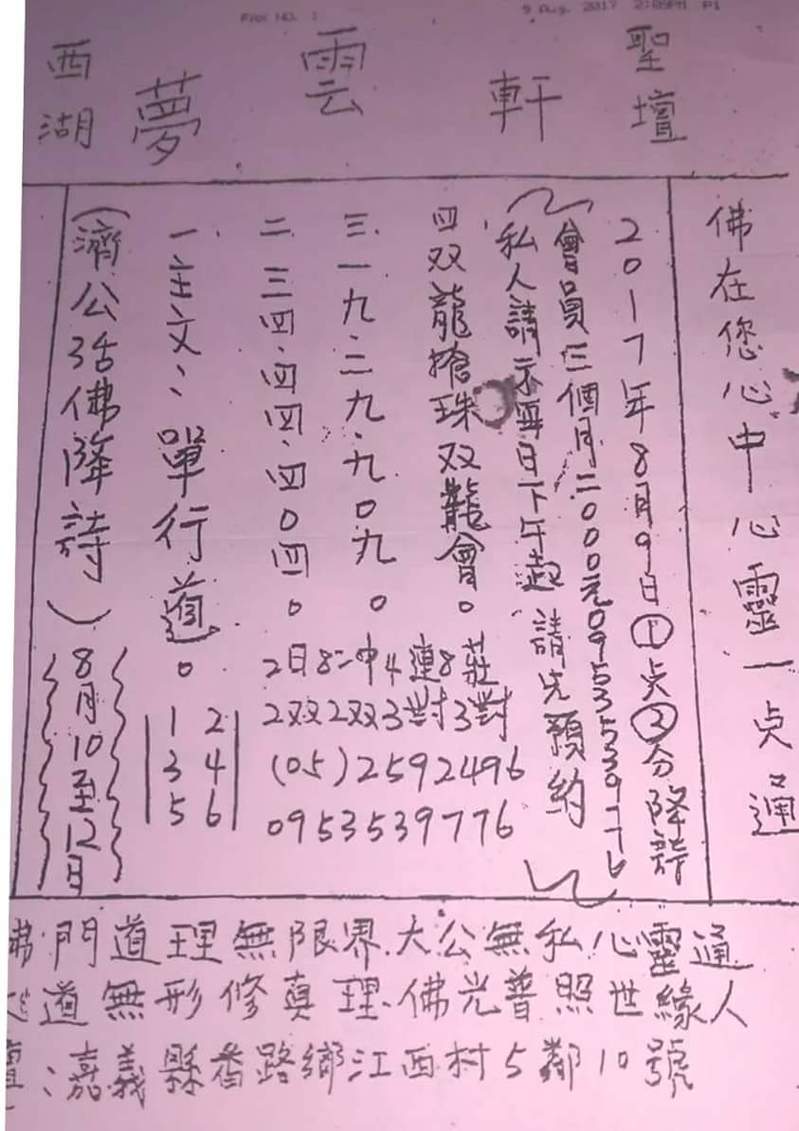 9 Aug. 2017 2:05PM P1
FAX NO. :
西湖 夢雲軒 聖壇
佛在您心中心靈一点通
2017年8月9日①点②分降詩
會員三個月二000元0953539776
私人請示每日下午起請先預約
四双龍搶珠双龍會。
三.一九.二九.九0九。
二.三四.四四.四0四。
一主文:單行道。
(濟公活佛降詩)
8月10至12日
2日8二中4連8莊
2双2双3對3對
(05)2592496
0953539776
1 2
3 4
5 6
佛門道理無限界.大公無私心靈通
道無形修真理.佛光普照世緣人
壇:嘉義縣番路鄉江西村5鄰10號